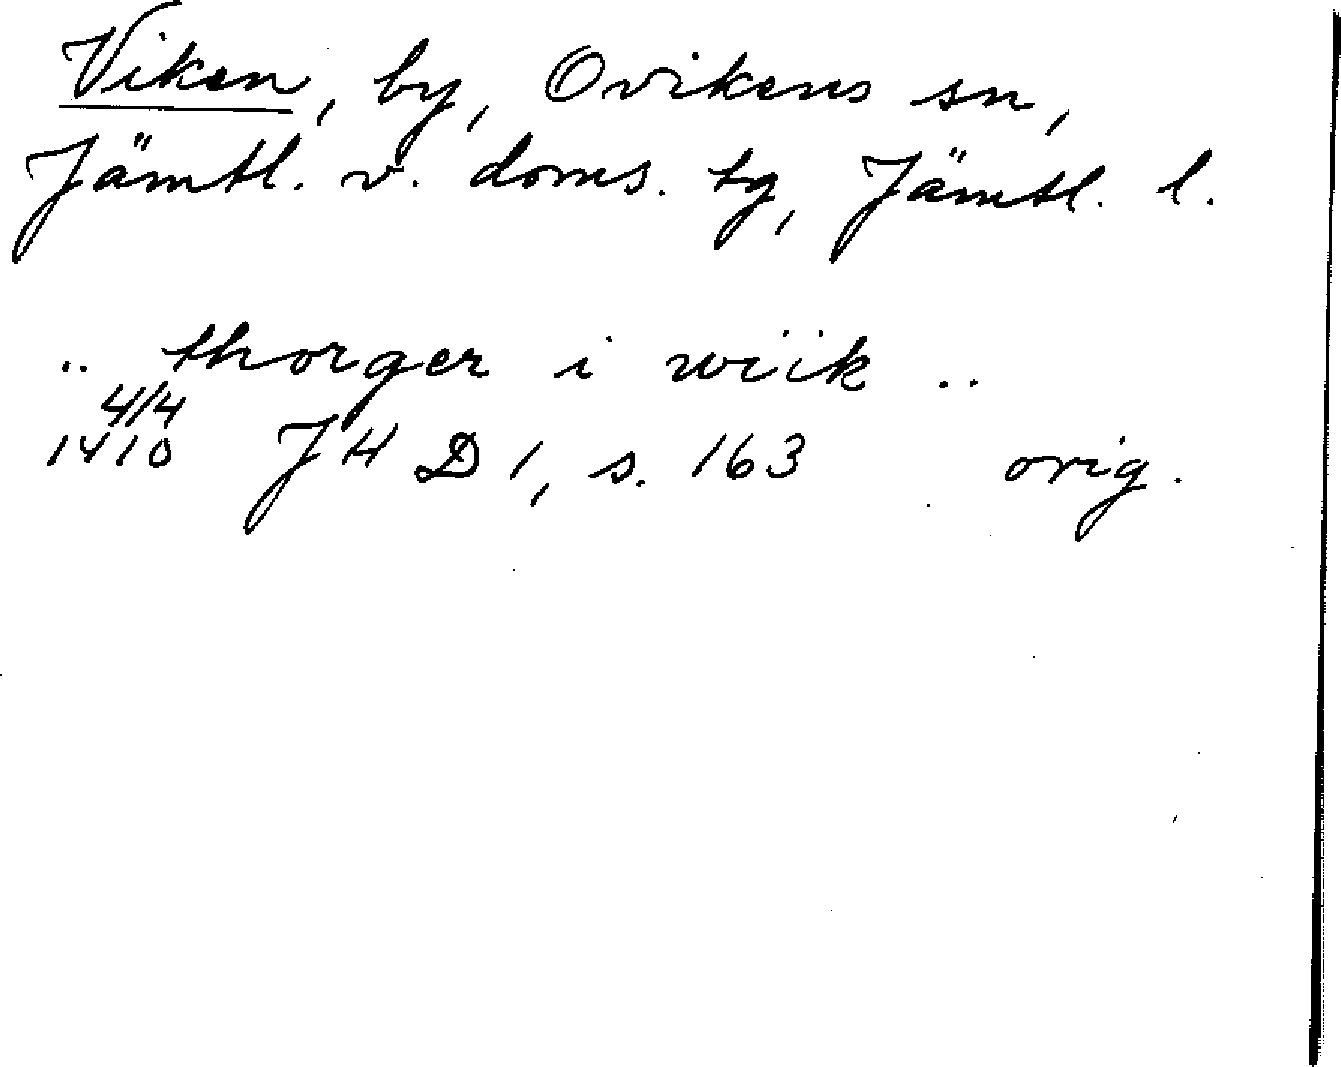 Viken, by, Ovikens sn,
Jämtl. v. doms. tg, Jämtl. l.
.. thorger i wiik ..
4/4
1410 JHD 1, s. 163 orig.